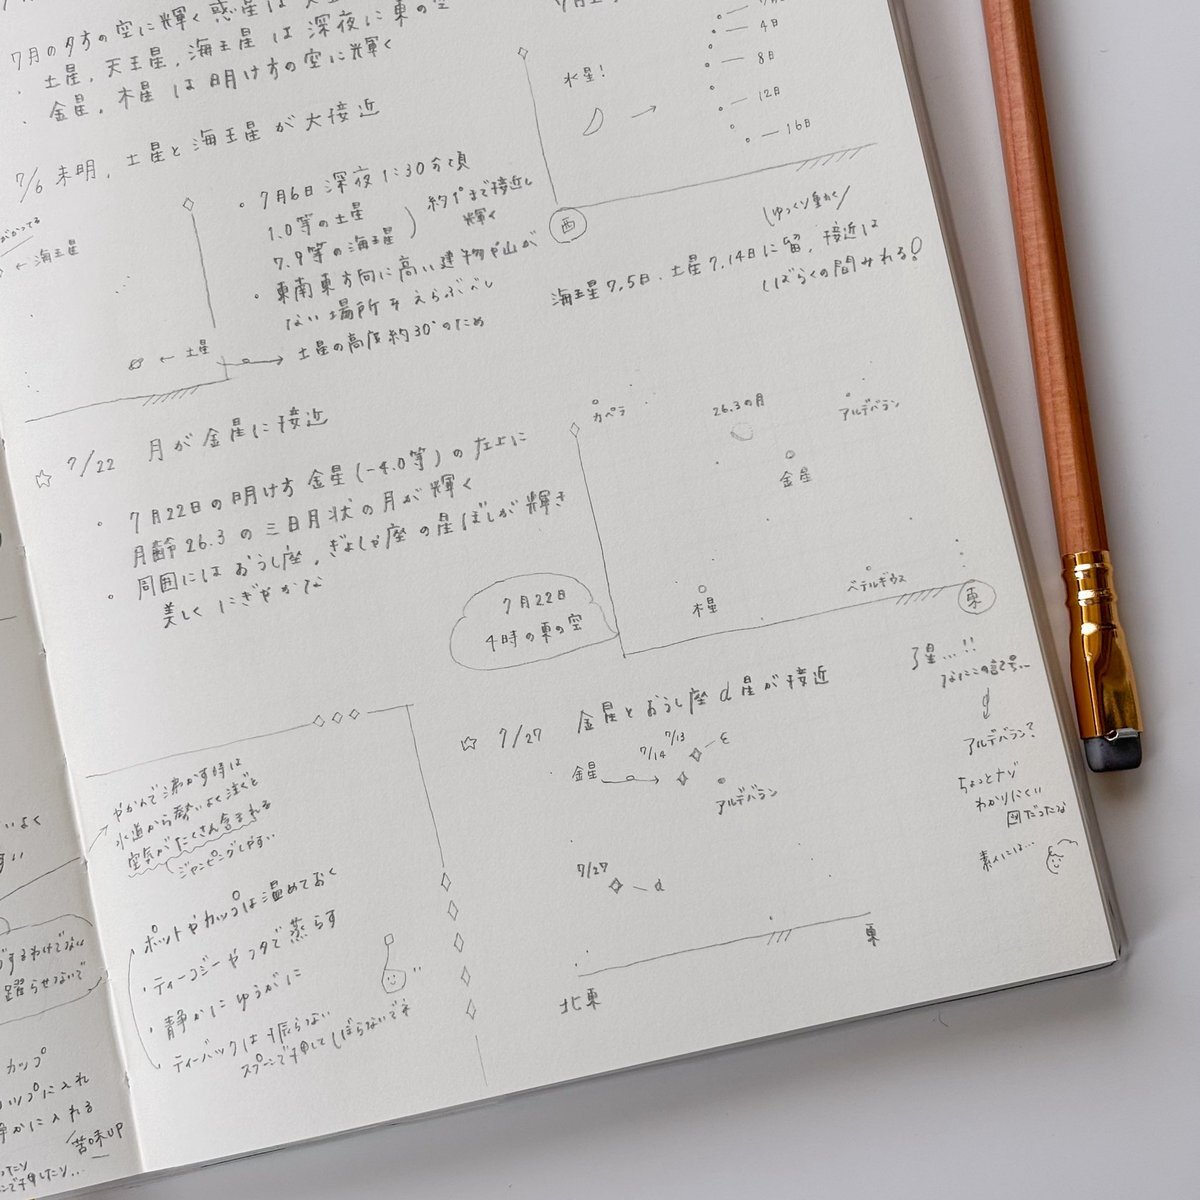 7月の夕方の空に輝く惑星は
・土星、天王星、海王星は深夜に東の空
・金星、木星は明け方の空に輝く
7/6 未明、土星と海王星が大接近
・7月6日深夜に30分頃
1.0等の土星
7.9等の海王星
約1°まで接近し
輝く
・東南東方向に高い建物や山が
ない場所をえらぶべし
土星の高度約30°のため
← 海王星
← 土星
水星!
4日
8日
12日
16日
西
ゆっくり動かく
海王星7.5日・土星7.14日に留、接近は
しばらくの間みれる!
☆ 7/22 月が金星に接近
・7月22日の明け方 金星(-4.0等)の左上に
月齢26.3の三日月状の月が輝く
・周囲にはおうし座、ぎょしゃ座の星ぼしが輝き
美しくにぎやかな
カペラ
26.3の月
アルデバラン
金星
木星
ベテルギウス
東
7月22日
4時の東の空
☆ 7/27 金星とおうし座d星が接近
7/13
7/14
ε
金星
アルデバラン
7/27
d
北東
東
星...!!
なにこの記号...
d
アルデバラン?
ちょっとナゾ
わかりにくい
図だったな
素人には...
やかんで沸かす時は
水道から勢いよく注ぐと
空気がたくさん含まれる
ジャンピングしやすい
・ポットやカップは温めておく
・ティーコジーやフタで蒸らす
・静かにゆうがに
・ティーバックは振らない
スプーンで押してしぼらないでネ
いよく
すい
するわけでない
躍らせないで
カップ
カップに入れ
静かに入れる
苦味UP
ったり
で押したり...